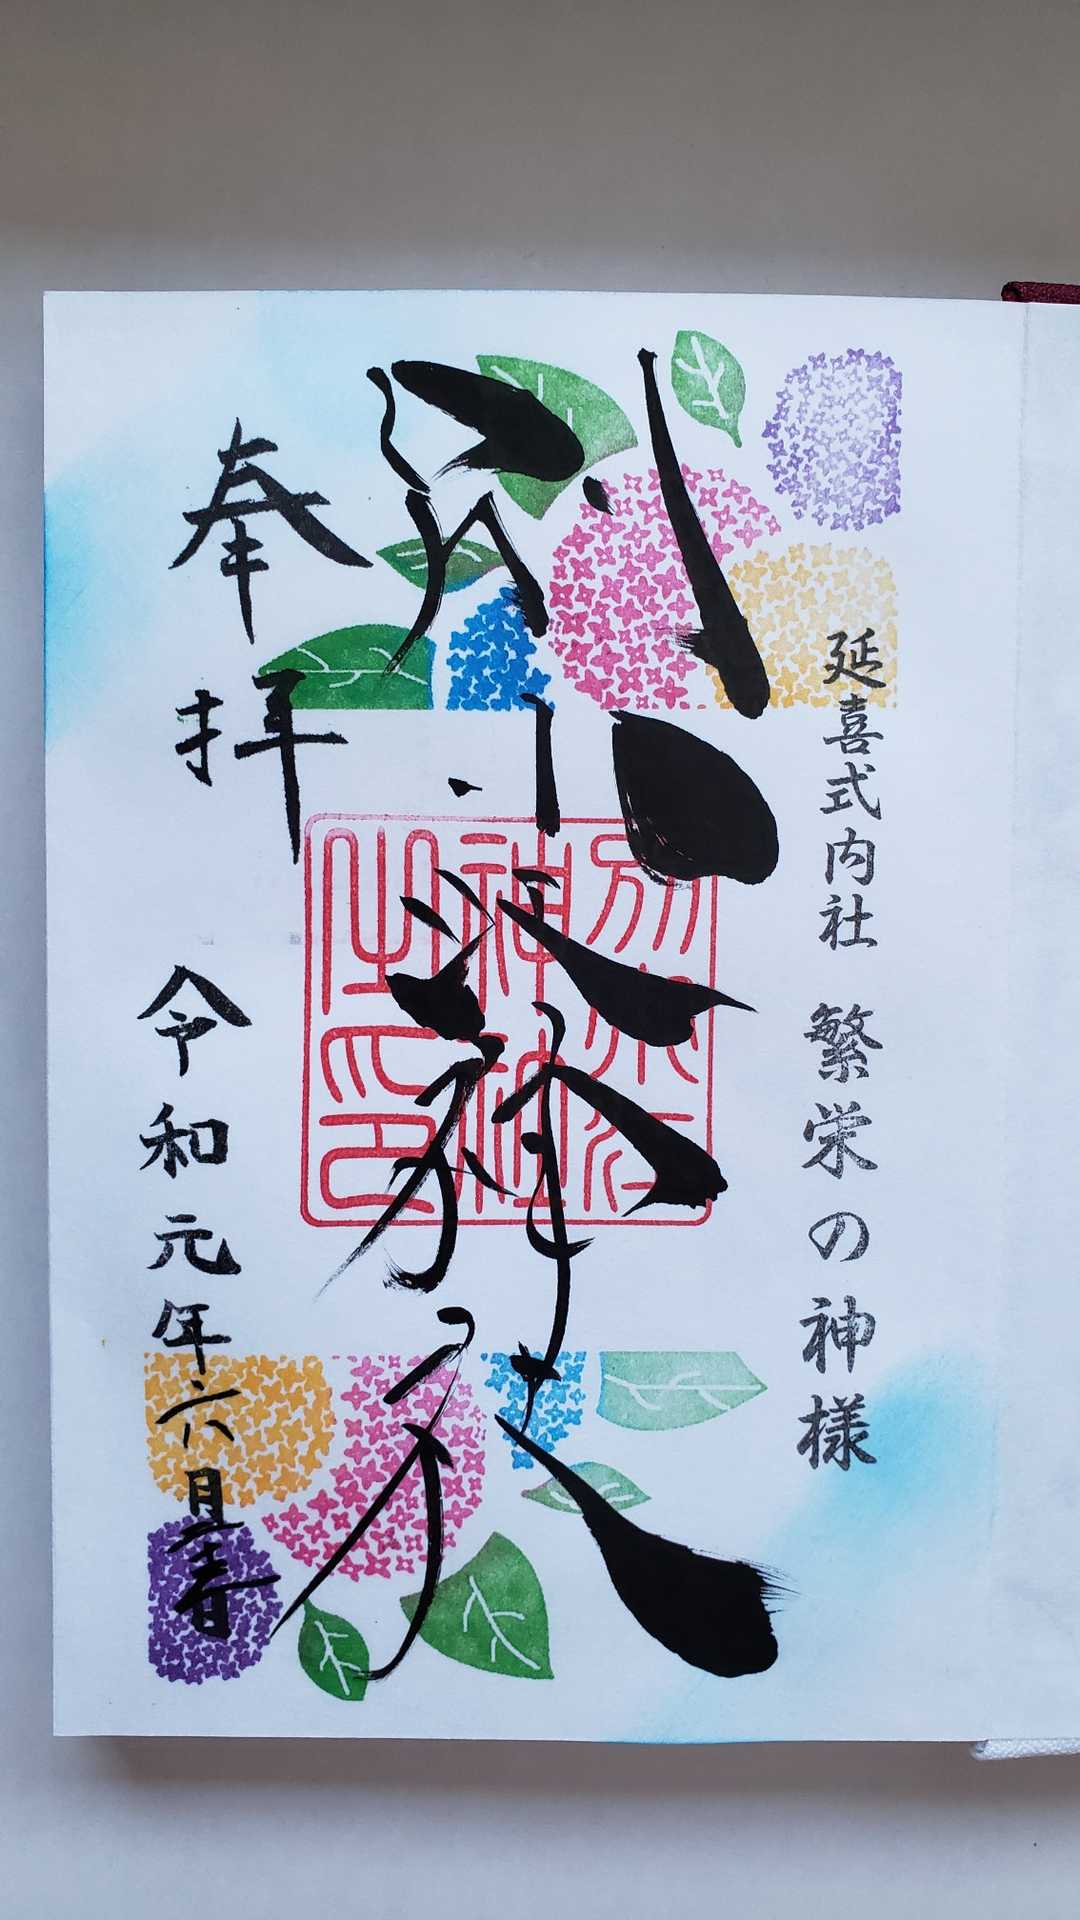 延喜式内社 繁栄の神様
別小江神社
別小江神社之印
奉拝
令和元年六月